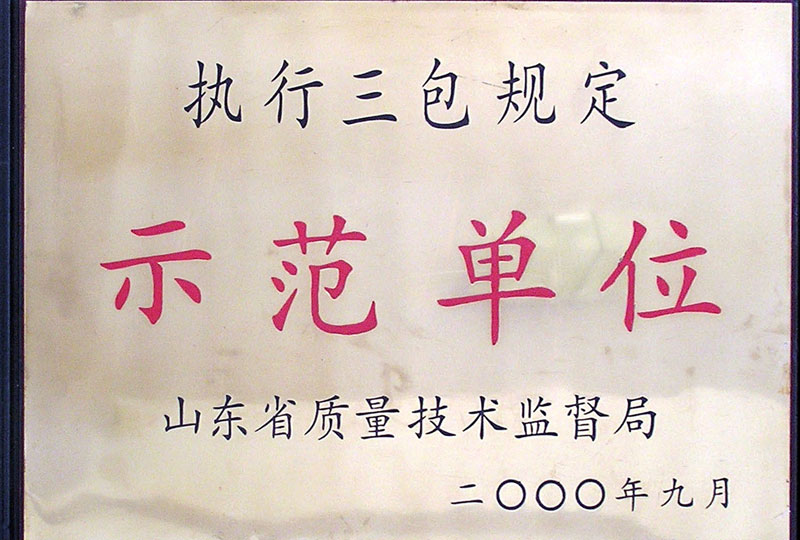 执行三包规定
示范单位
山东省质量技术监督局
二〇〇〇年九月